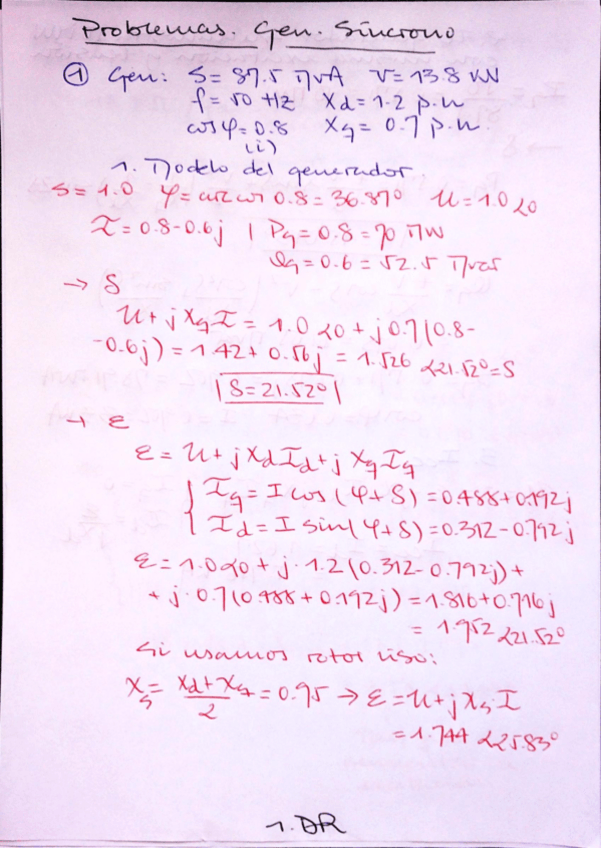 Problemas. Gen. Síncrono
① Gen: S = 87.5 MVA V = 13.8 kV
f = 50 Hz Xd = 1.2 p.u
cos φ = 0.8 Xq = 0.7 p.u.
(i)
1. Modelo del generador
S = 1.0 φ = arccos 0.8 = 36.87° U = 1.0∠0
I = 0.8 - 0.6j | Pg = 0.8 = 70 MW
Qg = 0.6 = 52.5 Mvar
→ δ
U + jXqI = 1.0∠0 + j0.7(0.8-
-0.6j) = 1.42 + 0.56j = 1.526 ∠21.52° = δ
|δ = 21.52°|
→ E
E = U + jXdId + jXqIq
{ Iq = I cos(φ+δ) = 0.488 + 0.192j
Id = I sin(φ+δ) = 0.312 - 0.792j
E = 1.0∠0 + j·1.2(0.312 - 0.792j) +
+ j·0.7(0.488 + 0.192j) = 1.816 + 0.716j
= 1.952 ∠21.52°
Si usamos rotor liso:
Xs = (Xd + Xq)/2 = 0.95 → E = U + jXsI
= 1.744 ∠25.83°
1. DR